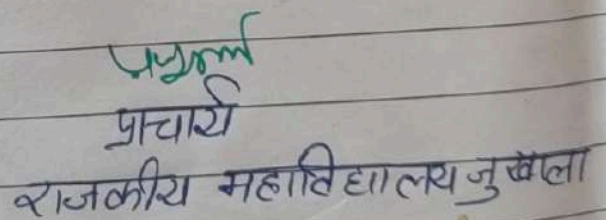 प्राचार्य
राजकीय महाविद्यालय जुखाला